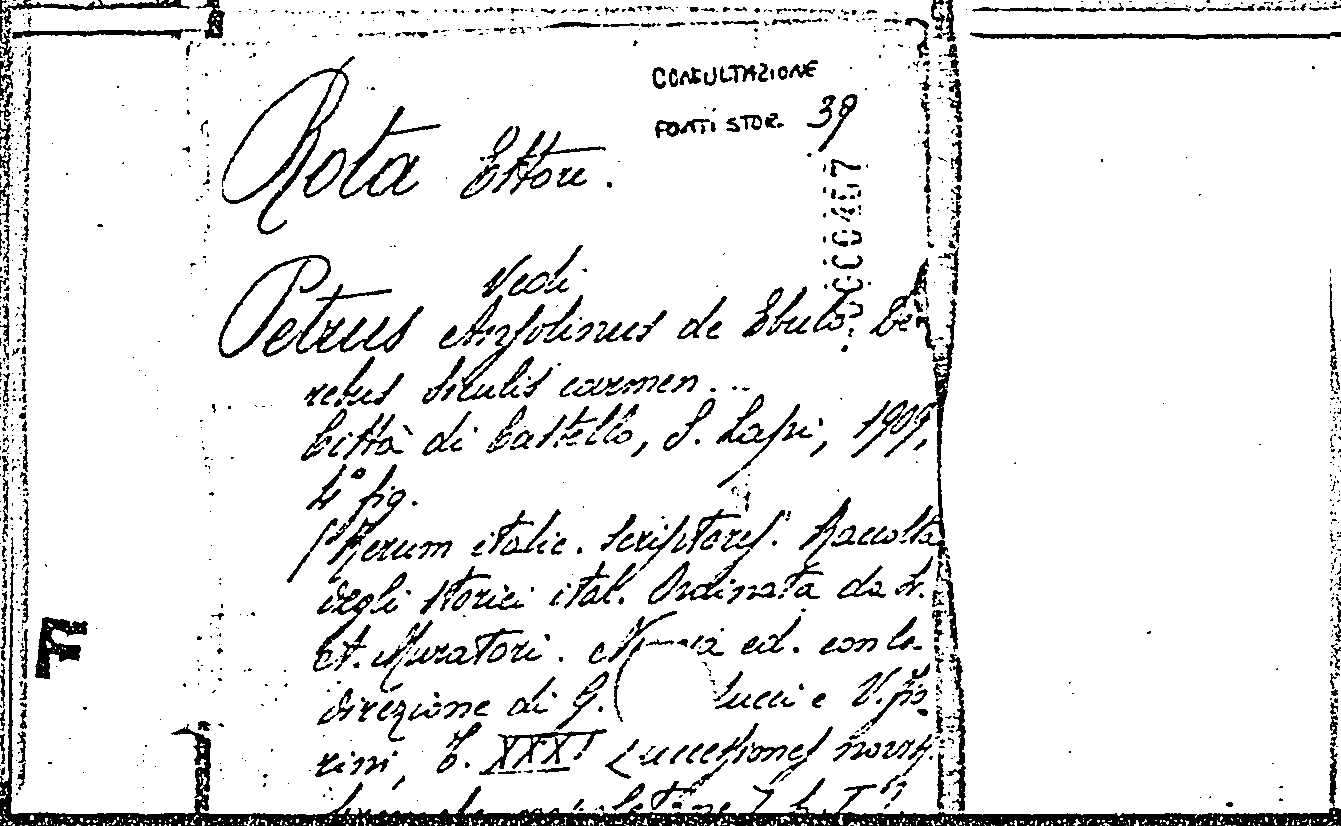 CONSULTAZIONE
FONTI STOR. 39
Rota Ettore.
000467
Vedi
Petrus Ansolinus de Ebulo. De
rebus Siculis carmen...
Città di Castello, S. Lapi, 1909,
4° fig.
("Rerum italic. Scriptores". Raccolta
degli storici ital. Ordinata da L.
A. Muratori. ed. con la
direzione di G. ducci e V. Fio
rini, T. XXXI
F